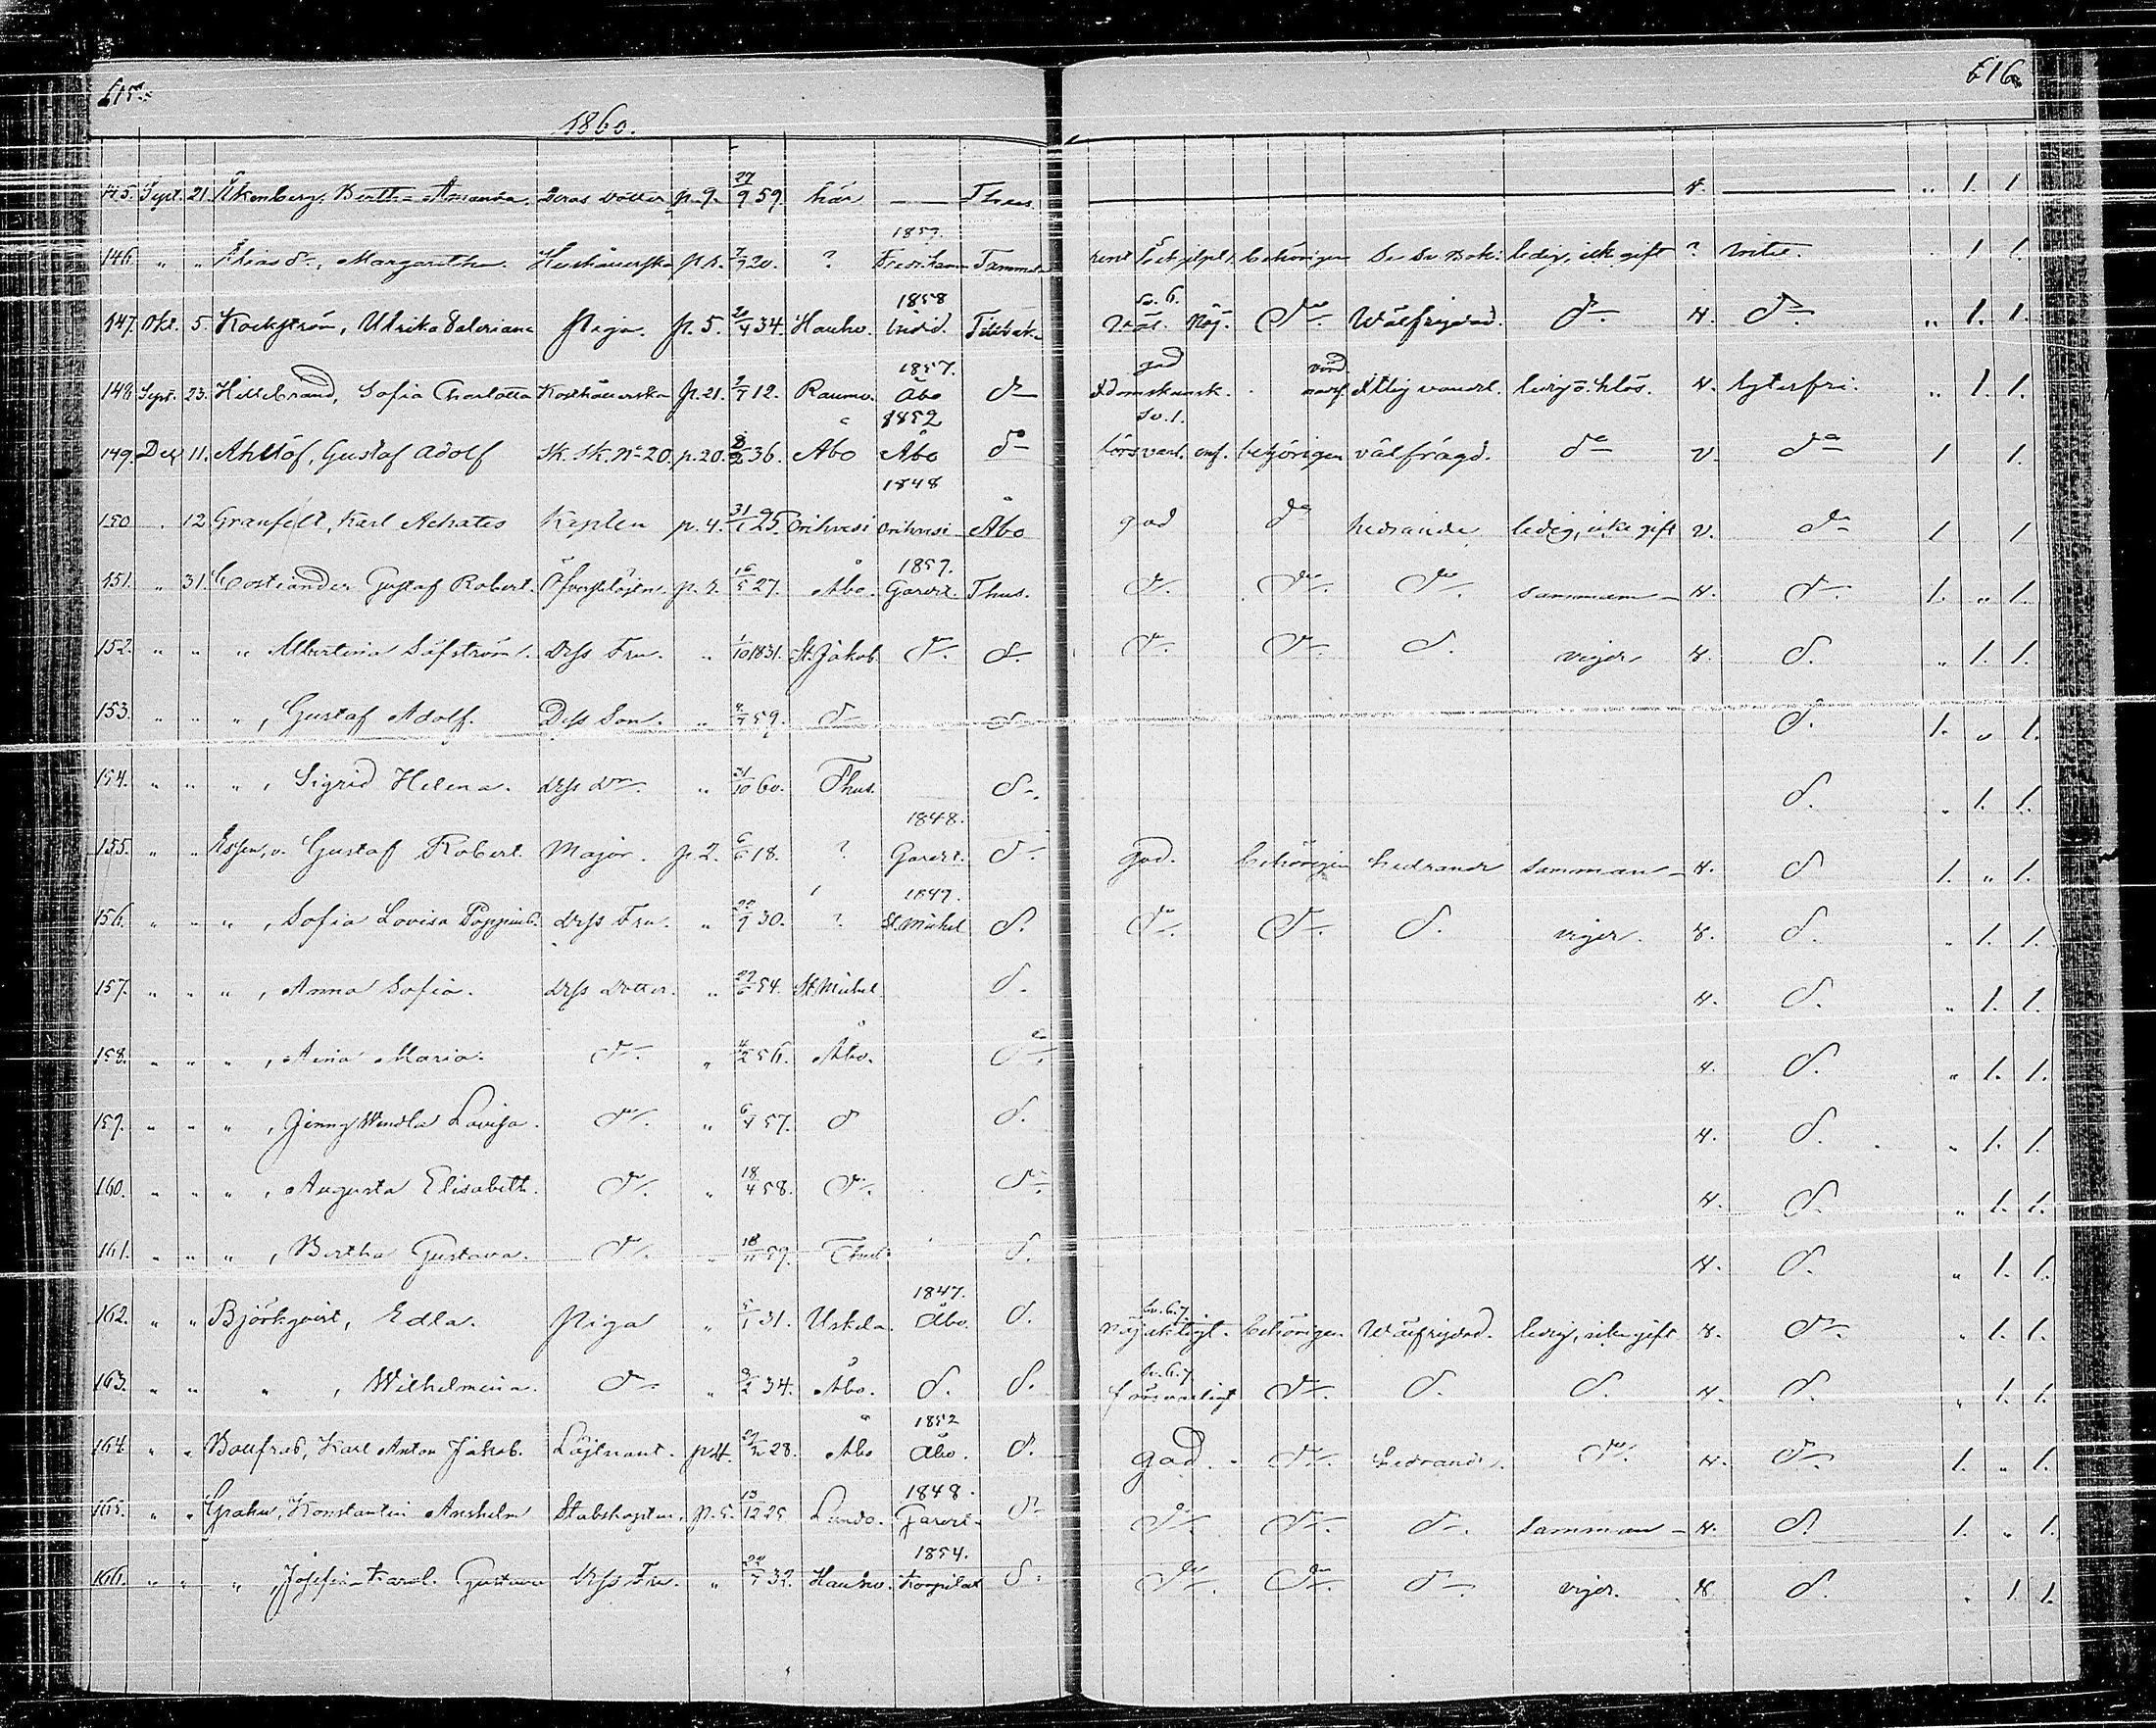 615.
616.
1860.
145. Sept. 21. Åkenberg, Bertha Amanda. Deras dotter p. 9. 27/9 59. här — Thus. — v. — „ 1. 1.
1859.
146. „ „ Elias dr, Margaretha. Hushållerska 7/7 20. ? Fredrikham behörigen ledig, ick gift ? 1 1.
1858 Sv. 6.
147. Okt. 5. Kockström, Ulrika Valeriana Piga. p. 5. 2/4 34. Hauho. Nöj. do. Wälfrejdad. do v. do „ 1. 1.
1857. god
148. Sept. 23. Hillebrand, Sofia Charlotta Hushållerska p. 21. 9/7 12. Raumo. Åbo do ledig o. hlös. v. lyterfri. „ 1. 1.
1852 Sv. 1.
149. Dec 11. Ahllöf, Gustaf Adolf Sk. Sk. No 20. p. 20. 8/2 36. Åbo Åbo do försvarl. behörigen välfrägd. do v. do 1 1.
1848
150 . 12 Granfelt, Karl Achates Kaplen p. 4. 31/1 25. Orihvesi Orihvesi Åbo god do hedrande ledig, icke gift v. do 1 1
1857.
151. „ 31. Costiander Gustaf Robert. Öfverstelöjtn. p. 2. 16/5 27. Åbo. Garniz. Thus. do. do. do. samman- v. do. 1. „ 1.
152. „ „ „ Albertina Säfström. dess Fru. „ 1/10 1831. St. Jakob. do. do. do. do. do. viger v. do. „ 1. 1.
153. „ „ „, Gustaf Adolf. Dess Son. „ 4/7 59. do do do. 1. „ 1.
154. „ „ „, Sigrid Helena. dess dr. „ 31/10 60. Thus. do. do. „ 1. 1.
1848.
155. „ „ Essen, v. Gustaf Robert. Major. p 2. 6/6 18. ? Garniz. do. god. behörigen hedrande samman- v. do 1. „ 1.
1849.
156. „ „ „, Sofia Lovisa Poppius. dess Fru. „ 22/9 30. ? St. Michel do. do. do. do. viger. v. do. „ 1. 1.
157. „ „ „, Anna Sofia. dess dotter. „ 29/6 54. St. Michel do. v. do. „ 1. 1.
158. „ „ „, Aina Maria. do. „ 4/2 56. Åbo. do. v. do. „ 1. 1.
159. „ „ „, Jenny Wendla Lovisa. do. „ 6/4 57. do do. v. do. „ 1. 1.
160. „ „ „, Augusta Elisabeth. do. „ 18/4 58. do. do. v. do. „ 1. 1.
161. „ „ „, Bertha Gustava. do. „ 18/11 59. Thus. do. v. do. „ 1. 1.
1847. Sv. 6. 7
162. „ „ Björkqvist, Edla. Piga „ 5/1 31. Uskela. Åbo. do. Nöjaktigt. behörigen. Wälfrejdad. ledig, icke gift v. do. „ 1. 1.
Sv. 6. 7
163. „ „ „, Wilhelmina. do. „ 9/2 34. Åbo. do. do. försvarligt do. do. do. v. do. „ 1. 1.
1852
164. „ „ Bonfras, Karl Anton Jakob. Löjtnant. p. 4. 28. Åbo Åbo. do. god. do. hedrande. do. v. do. 1. „ 1.
1848.
165. „ „ Grahn, Konstantin Anshelm Stabskapten. p. 5. 13/12 25. Lundo. Garniz. do do. do. do. samman- v. do. 1. „ 1.
1854.
166. „ „ „, Josefina Karol. Gustava dess Fru. „ 22/7 32. Hauho. do. do. do. do. viger. v. do. „ 1. 1.